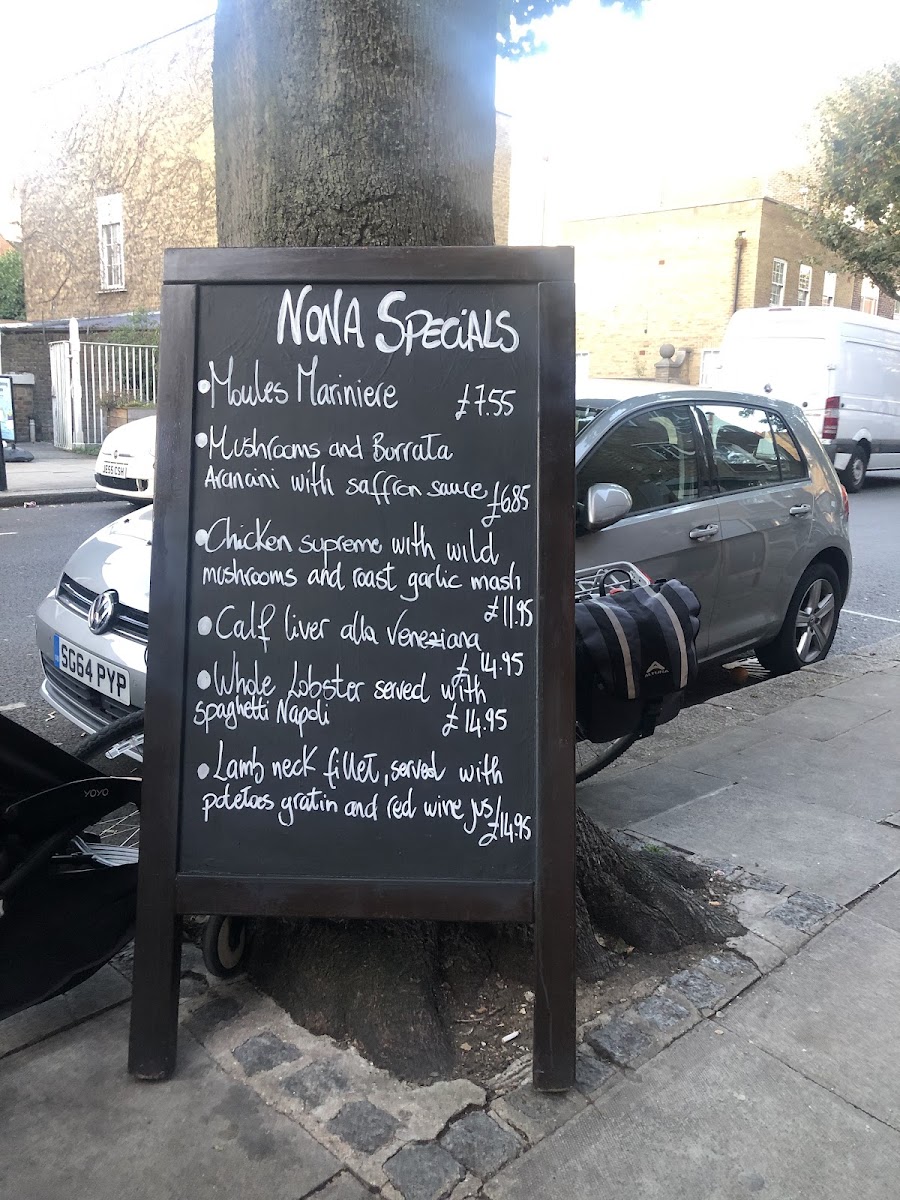 NONA SPECIALS
• Moules Mariniere £7.55
• Mushrooms and Burrata
Arancini with saffron sauce £6.85
• Chicken supreme with wild
mushrooms and roast garlic mash
£11.95
• Calf liver alla Veneziana
£14.95
• Whole Lobster served with
spaghetti Napoli £14.95
• Lamb neck fillet, served with
potetoes gratin and red wine jus £14.95
SG64 PYP
YOYO
ALTURA